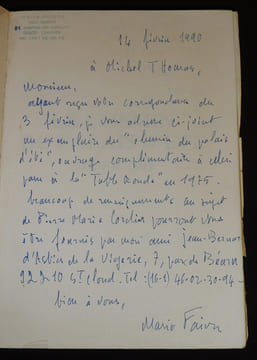 14 février 1990
à Michel Thomas,
Monsieur,
ayant reçu votre correspondance du
3 février, je vous adresse ci-joint
un exemplaire du "chemin du palais
d'été" ouvrage complémentaire à celui
paru à la "Table Ronde" en 1975.
beaucoup de renseignements au sujet
de Pierre Marie Cordier pourront vous
être fournis par mon ami Jean-Bernard
d'Astier de la Vigerie, 7, parc de Béarn
92210 St Cloud. Tel : (16-1) 46-02-30-94 -
bien à vous,
Mario Faivre